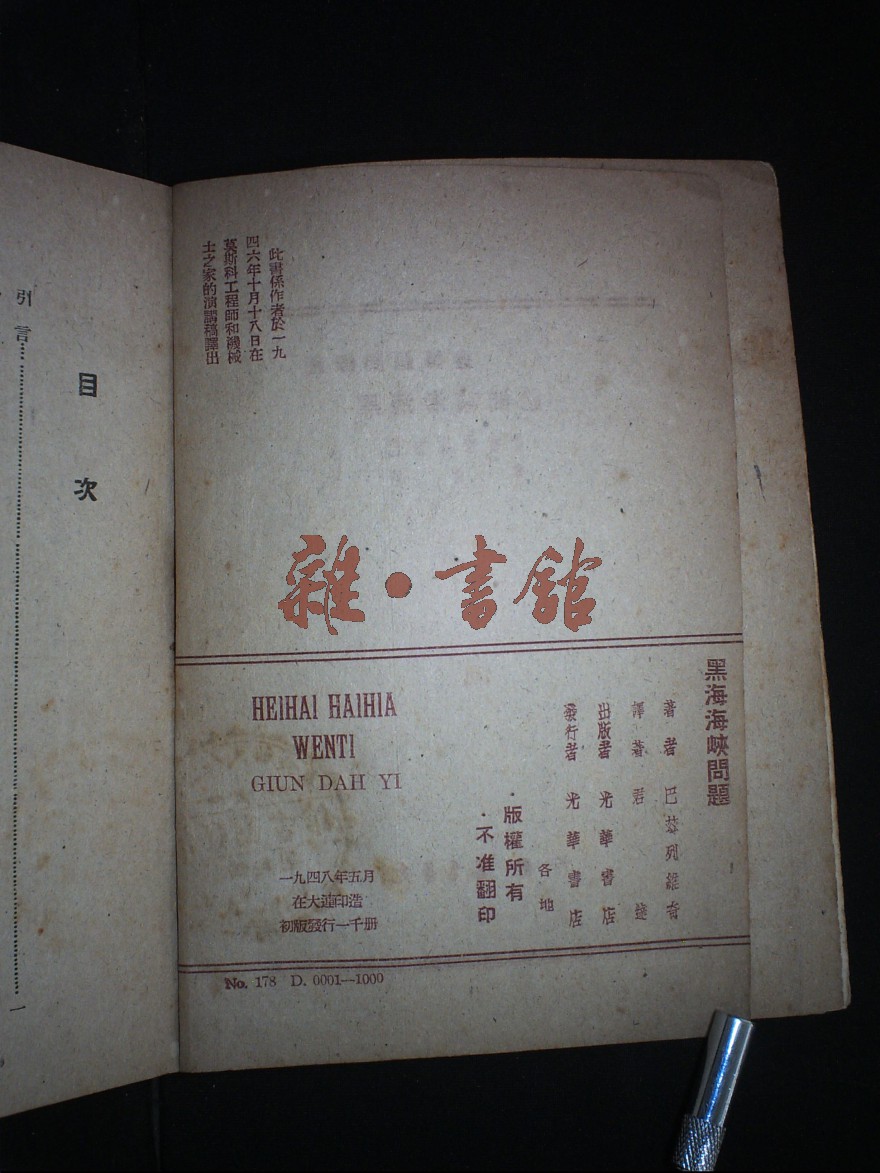 此書係作者於一九
四六年十月十八日在
莫斯科工程師和機械
士之家的演講稿譯出
雜·書館
黑海海峽問題
著者 巴茶列維奇
譯者 君達
出版者 光華書店
發行者 光華書店
各地
·版權所有
·不准翻印
HEIHAI HAIHIA
WENTI
GIUN DAH YI
一九四八年五月
在大連印造
初版發行一千册
No. 178 D. 0001—1000
目次
引言……一